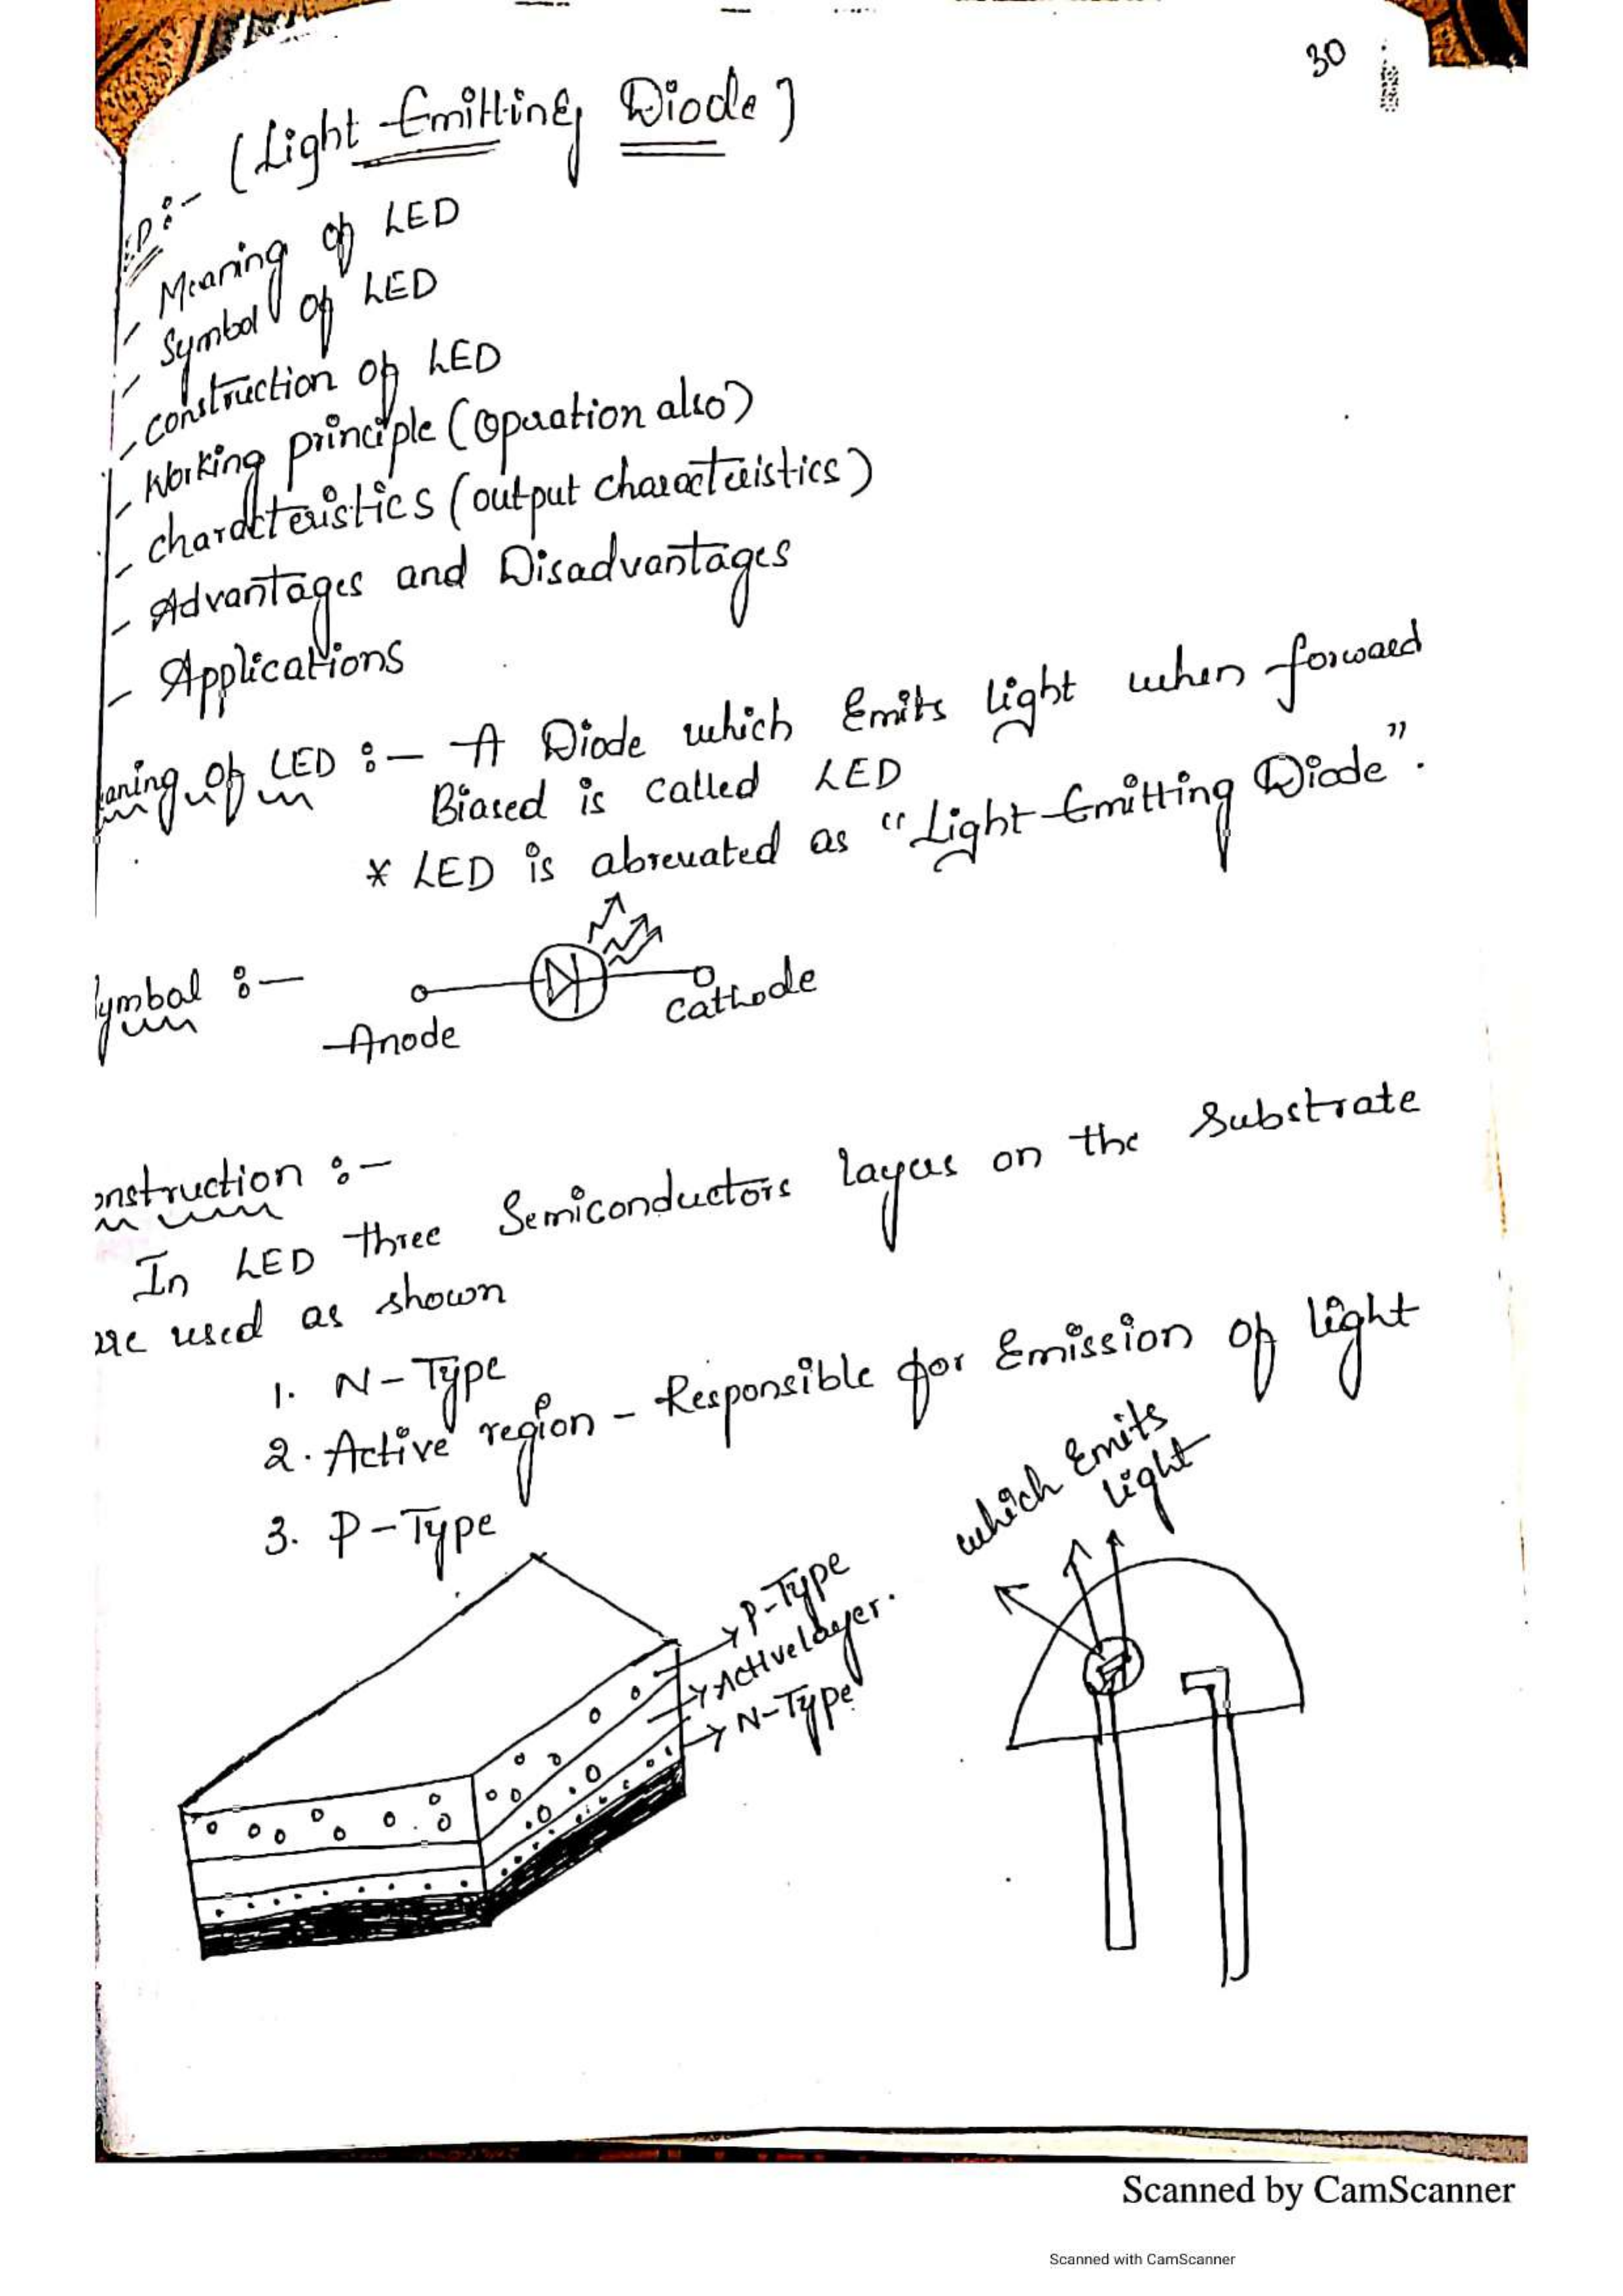 30
(Light Emitting Diode)
D:-
- Meaning of LED
- Symbol of LED
- construction of LED
- Working principle (operation also)
- characteristics (output characteristics)
- Advantages and Disadvantages
- Applications
aning of LED :- A Diode which Emits light when forward
Biased is called LED
* LED is abreuated as "Light Emitting Diode".
ymbol :-
Anode
Cathode
onstruction :-
In LED three Semiconductors layers on the Substrate
are used as shown
1. N-Type
2. Active region - Responsible for Emission of light
3. P-Type
which Emits
light
P-Type
Active layer.
N-Type
Scanned by CamScanner
Scanned with CamScanner